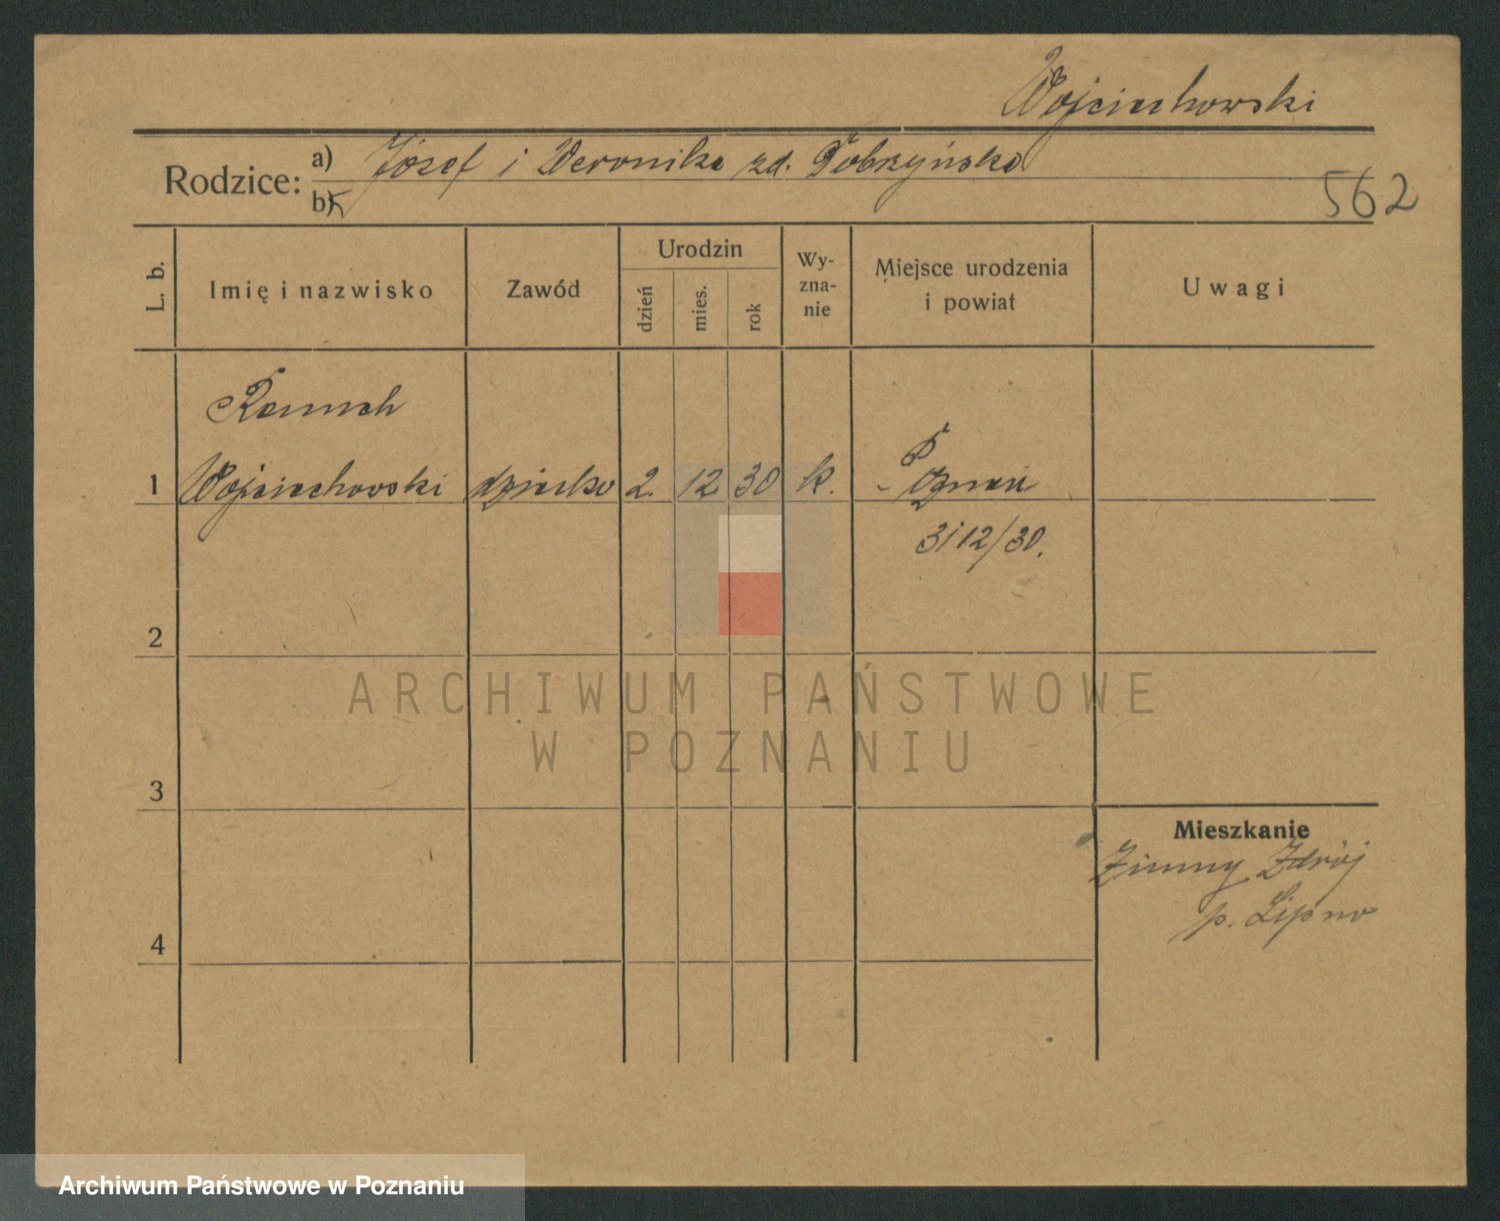 Wojciechowski
Rodzice: a) Józef i Weronika zd. Dobrzyńska
b)
562
L. b.
Imię i nazwisko
Zawód
Urodzin
dzień
mies.
rok
Wy-
zna-
nie
Miejsce urodzenia
i powiat
Uwagi
1 Wojciechowski dziecko 2. 12 30 k. Poznań
31 12/30.
2
3
4
Mieszkanie
Zimny Zdrój
p. Lipno
ARCHIWUM PAŃSTWOWE
W POZNANIU
Archiwum Państwowe w Poznaniu